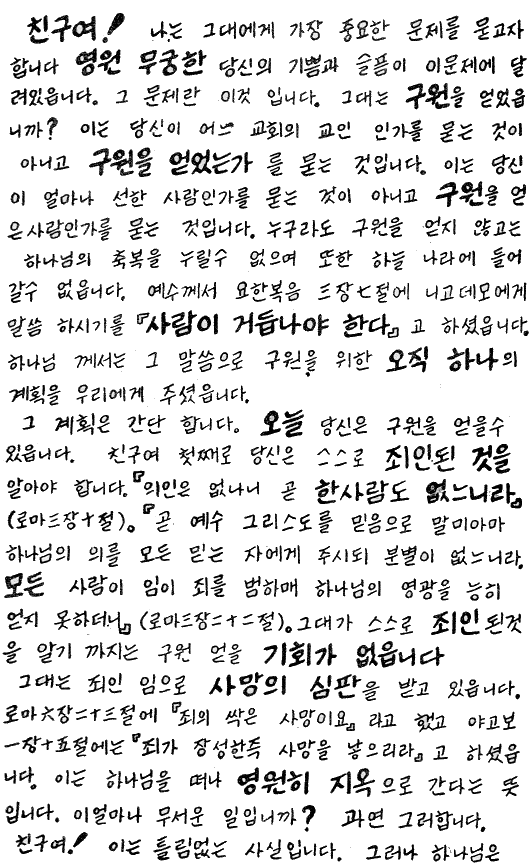 친구여! 나는 그대에게 가장 중요한 문제를 묻고자
합니다 영원 무궁한 당신의 기쁨과 슬픔이 이문제에 달
려있읍니다. 그 문제란 이것 입니다. 그대는 구원을 얻었읍
니까? 이는 당신이 어느 교회의 교인 인가를 묻는 것이
아니고 구원을 얻었는가 를 묻는 것입니다. 이는 당신
이 얼마나 선한 사람인가를 묻는 것이 아니고 구원을 얻
은사람인가를 묻는 것입니다. 누구라도 구원을 얻지 않고는
하나님의 축복을 누릴수 없으며 또한 하늘 나라에 들어
갈수 없읍니다. 예수께서 요한복음 三장七절에 니고데모에게
말씀 하시기를 『사람이 거듭나야 한다』고 하셨읍니다.
하나님 께서는 그 말씀으로 구원을 위한 오직 하나의
계획을 우리에게 주셨읍니다.
그 계획은 간단 합니다. 오늘 당신은 구원을 얻을수
있읍니다. 친구여 첫째로 당신은 스스로 죄인된 것을
알아야 합니다. 『의인은 없나니 곧 한사람도 없느니라』
(로마三장十절)。『곧 예수 그리스도를 믿음으로 말미아마
하나님의 의를 모든 믿는 자에게 주시되 분별이 없느니라.
모든 사람이 임이 죄를 범하매 하나님의 영광을 능히
얻지 못하더니』 (로마三장二十二절)。그대가 스스로 죄인 된것
을 알기 까지는 구원 얻을 기회가 없읍니다
그대는 죄인 임으로 사망의 심판을 받고 있읍니다.
로마六장二十三절에 『죄의 싹은 사망이요』 라고 했고 야고보
一장十五절에는 『죄가 장성한즉 사망을 낳으리라』고 하셨읍
니다. 이는 하나님을 떠나 영원히 지옥으로 간다는 뜻
입니다. 이얼마나 무서운 일입니까? 과연 그러합니다.
친구여! 이는 틀림없는 사실입니다. 그러나 하나님은